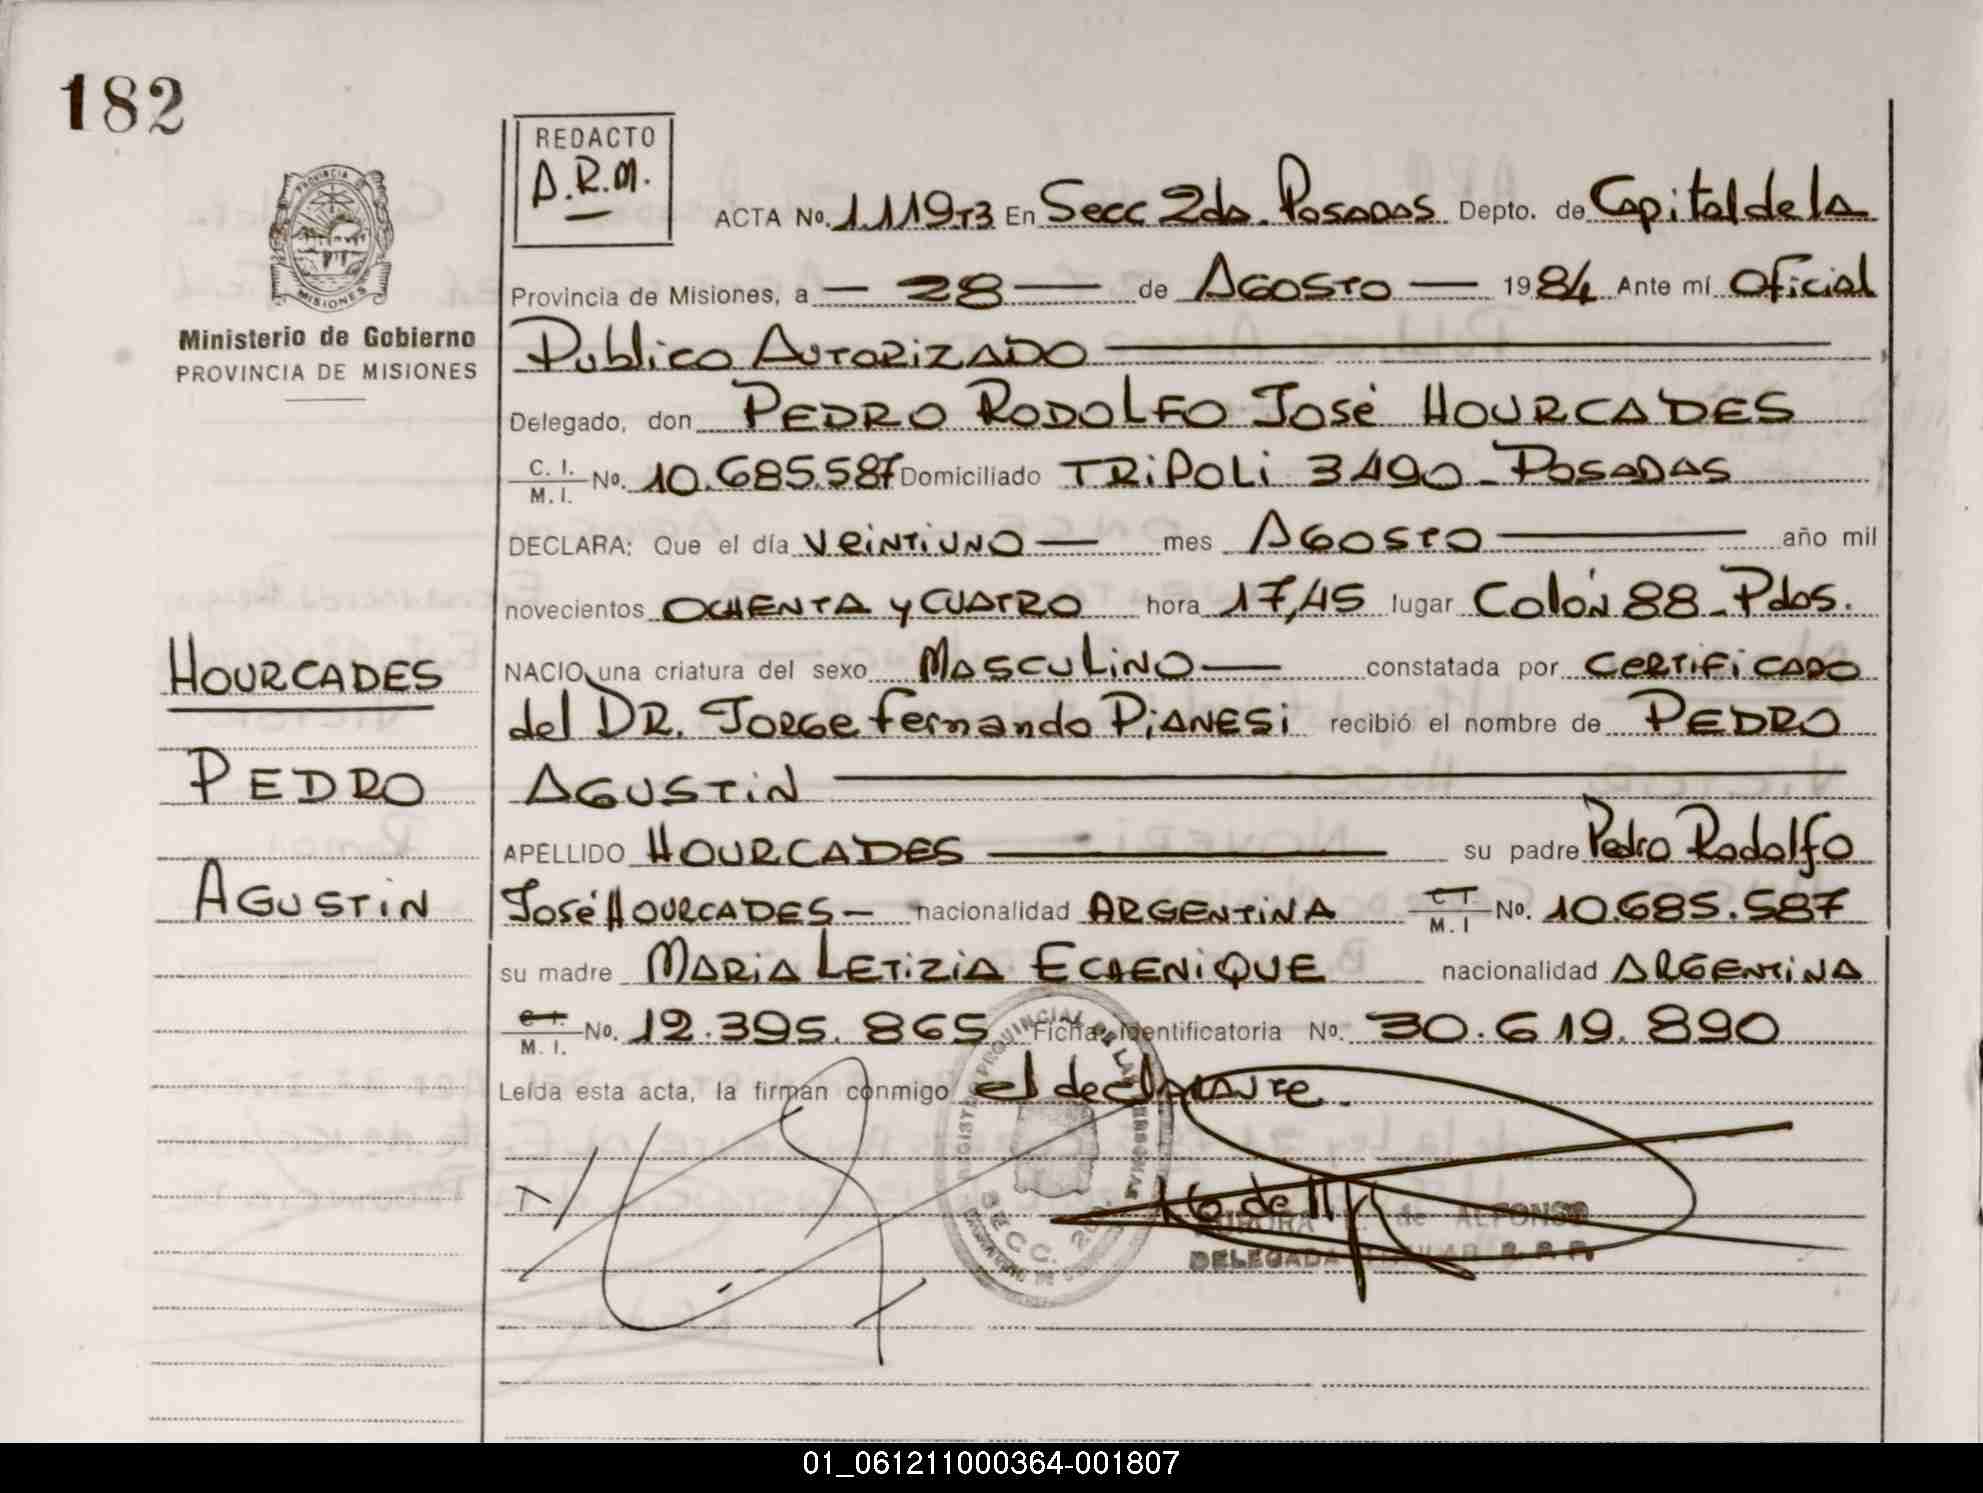 182
REDACTO
A.R.M.
PROVINCIA DE
MISIONES
Ministerio de Gobierno
PROVINCIA DE MISIONES
ACTA No. 1.119 T3 En Secc 2da. POSADAS Depto. de Capital de la
Provincia de Misiones, a — 28 — de AGOSTO — 1984 Ante mí Oficial
Publico AUTORIZADO
Delegado, don PEDRO RODOLFO José HOURCADES
C. I. / M. I. No. 10.685.587 Domiciliado TRIPOLI 3490 - POSADAS
DECLARA: Que el día VEINTIUNO — mes AGOSTO — año mil
novecientos OCHENTA y CUATRO hora 17,45 lugar Colón 88 - Pdas.
NACIO una criatura del sexo MASCULINO — constatada por CERTIFICADO
del DR. JORGE Fernando PIANESI recibió el nombre de PEDRO
AGUSTIN
APELLIDO HOURCADES — su padre Pedro Rodolfo
José HOURCADES — nacionalidad ARGENTINA C I. / M. I No. 10.685.587
su madre MARIA LETIZIA ECHENIQUE nacionalidad ARGENTINA
C I. / M. I. No. 12.395.865 Ficha identificatoria No. 30.619.890
Leída esta acta, la firman conmigo el declarante.
HOURCADES
PEDRO
AGUSTIN
REGISTRO PROVINCIAL DE LAS PERSONAS
SECC. 2da
de ALFONSO
DELEGADA
01_061211000364-001807